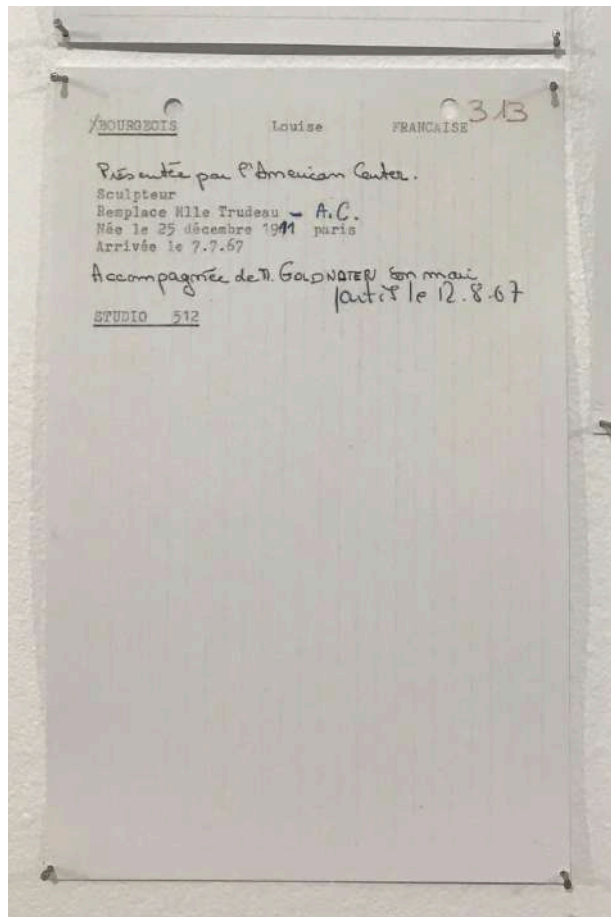 BOURGEOIS Louise FRANCAISE 313
Présentée par l'American Center.
Sculpteur
Remplace Mlle Trudeau - A.C.
Née le 25 décembre 1911 paris
Arrivée le 7.7.67
Accompagnée de M. GOLDWATER son mari
partis le 12.8.67
STUDIO 512